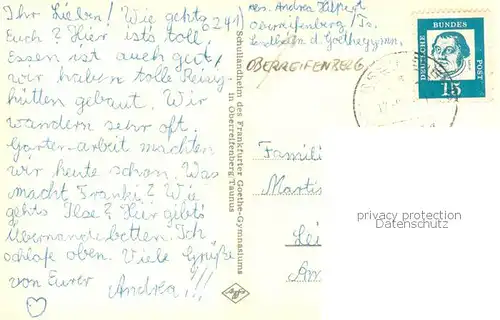 Ihr Lieben! Wie gehts
Euch? Hier ists toll,
Essen ist auch gut,
wir haben tolle Reisig-
hütten gebaut. Wir
wandern sehr oft.
Garten-arbeit machten
wir heute schon. Was
macht Franki? Wie
gehts Ilse? Hier gibts
Übernanderbetten. Ich
schlafe oben. Viele Grüße
von Eurer
Andrea!!!
(0241)
Abs. Andrea
Oberreifenberg/Ts.
Landheim d. Goethegymn.
OBERREIFENBERG
Schullandheim des Frankfurter Goethe-Gymnasiums
in Oberreifenberg-Taunus
Agfa
DEUTSCHE BUNDES POST
15
Famili
Martin
Lei
Am
privacy protection
Datenschutz